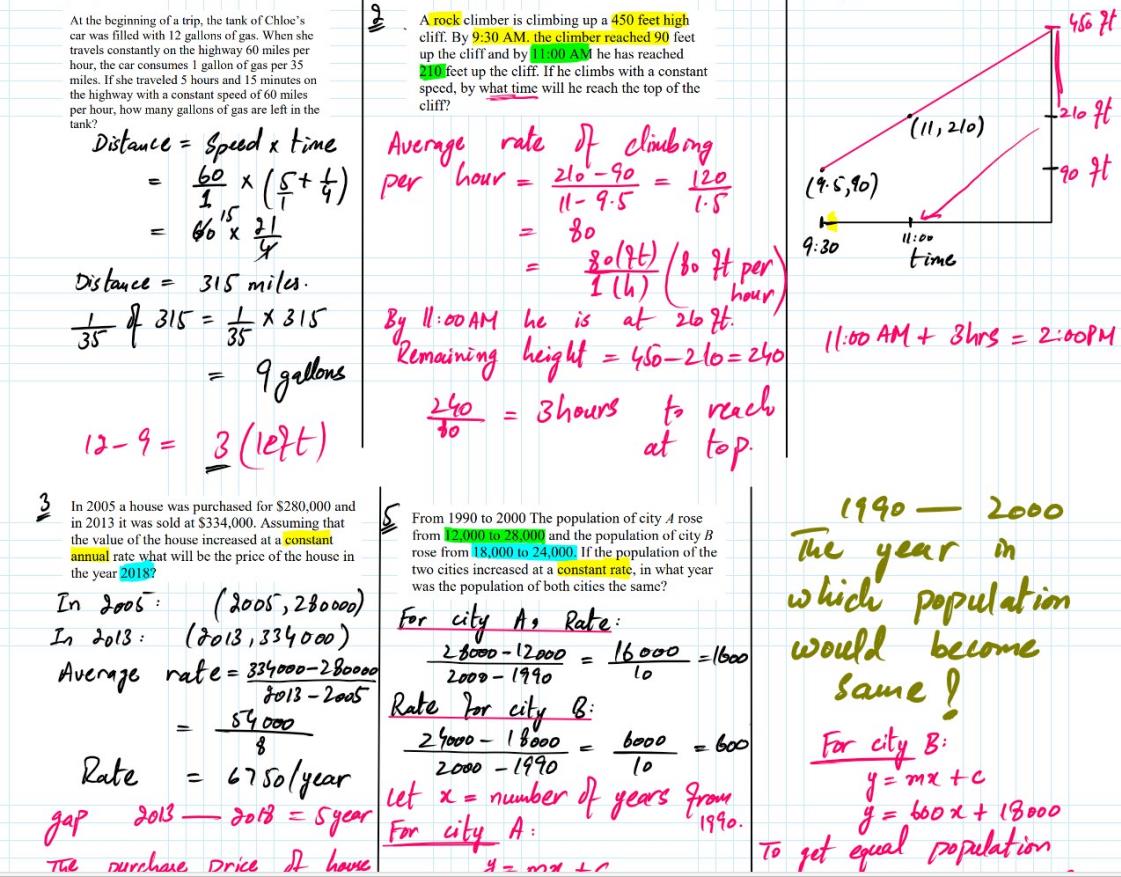 At the beginning of a trip, the tank of Chloc's
car was filled with 12 gallons of gas. When she
travels constantly on the highway 60 miles per
hour, the car consumes 1 gallon of gas per 35
miles. If she traveled 5 hours and 15 minutes on
the highway with a constant speed of 60 miles
per hour, how many gallons of gas are left in the
tank?
Distance = Speed x time
= 60/1 x (5/1 + 1/4)
= 60 15 x 21/4
Distance = 315 miles.
1/35 of 315 = 1/35 x 315
= 9 gallons
12 - 9 = 3 (left)
2
A rock climber is climbing up a 450 feet high
cliff. By 9:30 AM. the climber reached 90 feet
up the cliff and by 11:00 AM he has reached
210 feet up the cliff. If he climbs with a constant
speed, by what time will he reach the top of the
cliff?
Average rate of climbing
per hour = 210 - 90 / 11 - 9.5 = 120 / 1.5
= 80
= 80 (ft) / 1 (h) (80 ft per hour)
By 11:00 AM he is at 210 ft.
Remaining height = 450 - 210 = 240
240/80 = 3 hours to reach
at top.
450 ft
210 ft
(11, 210)
90 ft
(9.5, 90)
9:30
11:00
time
11:00 AM + 3hrs = 2:00PM
3
In 2005 a house was purchased for $280,000 and
in 2013 it was sold at $334,000. Assuming that
the value of the house increased at a constant
annual rate what will be the price of the house in
the year 2018?
In 2005: (2005, 280000)
In 2013: (2013, 334000)
Average rate = 334000 - 280000 / 2013 - 2005
= 54000 / 8
Rate = 6750/year
gap 2013 — 2018 = 5 year
The purchase price of house
5
From 1990 to 2000 The population of city A rose
from 12,000 to 28,000 and the population of city B
rose from 18,000 to 24,000. If the population of the
two cities increased at a constant rate, in what year
was the population of both cities the same?
For city A, Rate:
28000 - 12000 / 2000 - 1990 = 16000 / 10 = 1600
Rate for city B:
24000 - 18000 / 2000 - 1990 = 6000 / 10 = 600
Let x = number of years from
1990.
For city A:
y = mx + c
1990 — 2000
The year in
which population
would become
same !
For city B:
y = mx + c
y = 600x + 18000
To get equal population